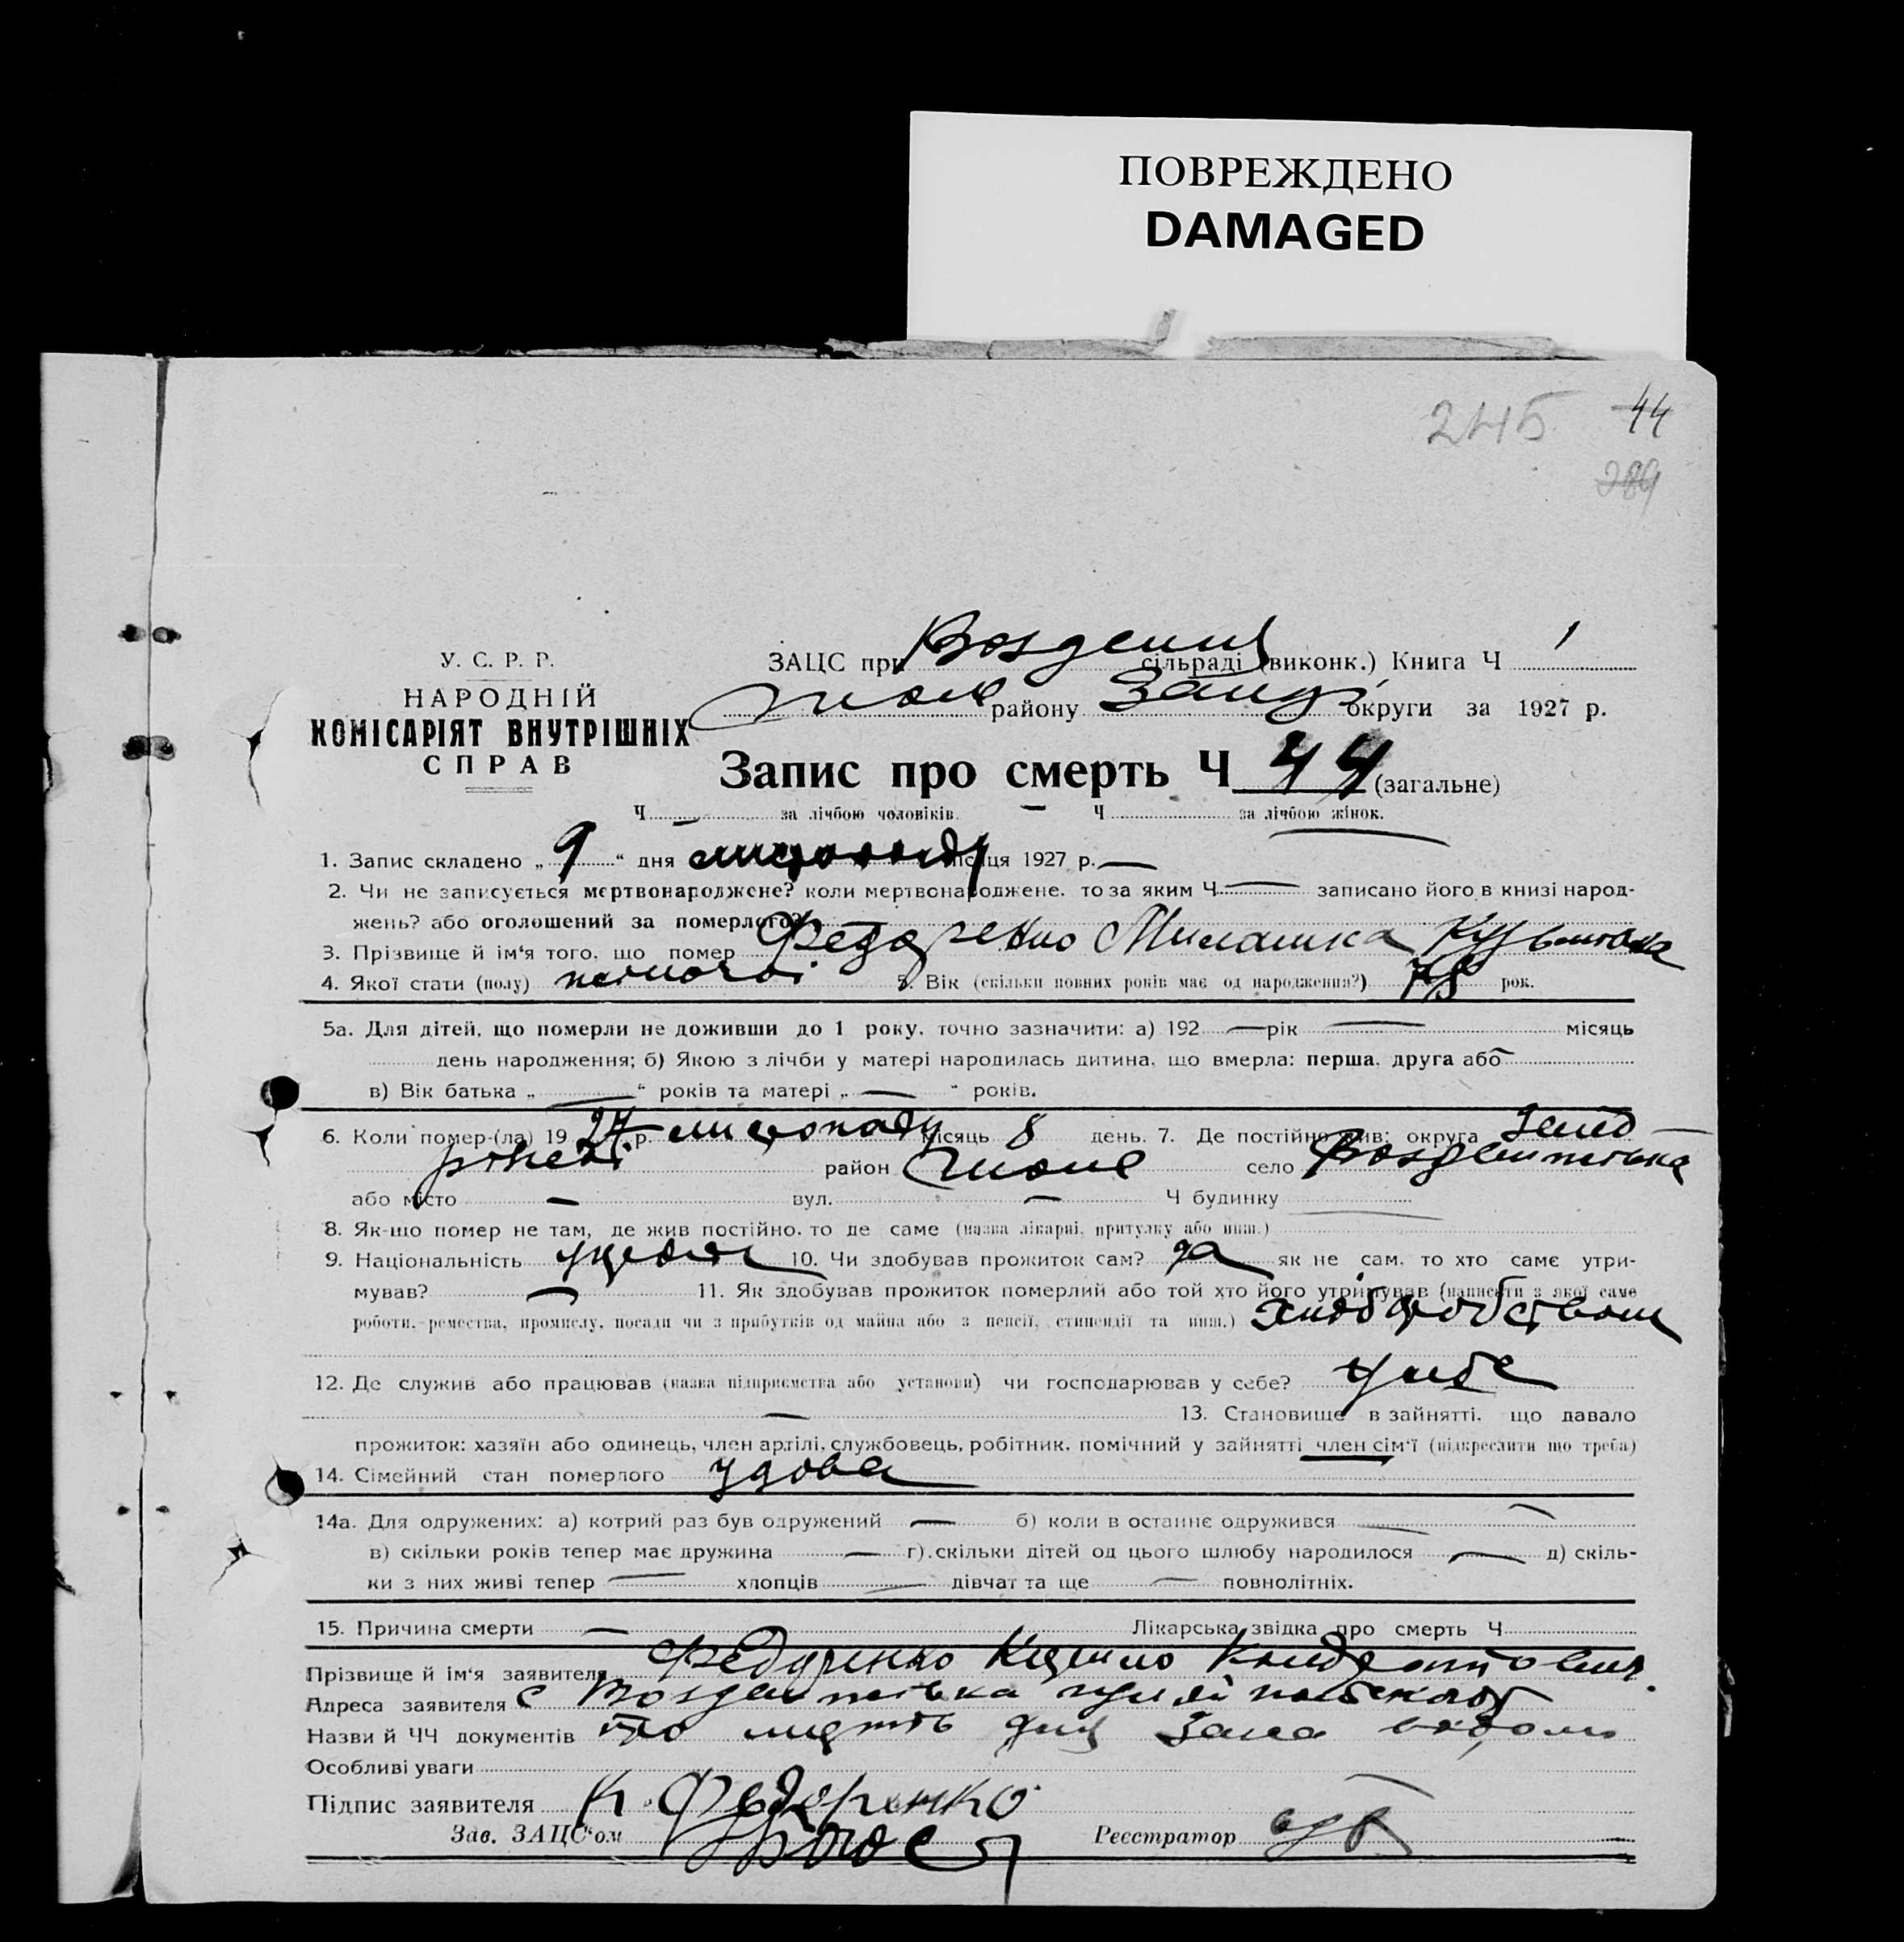 ПОВРЕЖДЕНО
DAMAGED
245 44
289
У. С. Р. Р.
НАРОДНІЙ
КОМІСАРІЯТ ВНУТРІШНІХ
СПРАВ
ЗАЦС при сільраді (виконк.) Книга Ч 1
району округи за 1927 р.
Запис про смерть Ч 44 (загальне)
Ч за лічбою чоловіків. — Ч за лічбою жінок.
1. Запис складено „ 9 “ дня листопаду місяця 1927 р. —
2. Чи не записується мертвонароджене? коли мертвонароджене. то за яким Ч — записано його в книзі народ-
жень? або оголошений за померлого?
3. Прізвище й ім'я того, що помер Федоренко Милашка
4. Якої стати (полу) жіночої 5. Вік (скільки повних років має од народження?) 78 рок.
5а. Для дітей, що померли не доживши до 1 року. точно зазначити: а) 192 — рік — місяць
день народження; б) Якою з лічби у матері народилась дитина, що вмерла: перша, друга або —
в) Вік батька „ — “ років та матері „ — “ років.
6. Коли помер-(ла) 19 27 р. листопаду місяць 8 день. 7. Де постійно жив: округа
район село
або місто — вул. — Ч будинку —
8. Як-що помер не там, де жив постійно. то де саме (назва лікарні, притулку або инш.)
9. Національність 10. Чи здобував прожиток сам? да як не сам, то хто саме утри-
мував? — 11. Як здобував прожиток померлий або той хто його утримував (написати з якої саме
роботи. ремества, промислу, посади чи з прибутків од майна або з пенсії, стипендії та инш.) хліборобством
12. Де служив або працював (назва підприємства або установи) чи господарював у себе? у себе
— 13. Становище в зайнятті. що давало
прожиток: хазяїн або одинець, член артілі, службовець, робітник. помічний у зайнятті член сім'ї (підкреслити що треба)
14. Сімейний стан померлого удова
14а. Для одружених: а) котрий раз був одружений — б) коли в останнє одружився —
в) скільки років тепер має дружина — г) скільки дітей од цього шлюбу народилося — д) скіль-
ки з них живі тепер — хлопців — дівчат та ще — повнолітніх.
15. Причина смерти — Лікарська звідка про смерть Ч
Прізвище й ім'я заявителя Федоренко Кондратович
Адреса заявителя с
Назви й ЧЧ документів
Особливі уваги
Підпис заявителя К. Федоренко
Зав. ЗАЦС'ом Реєстратор